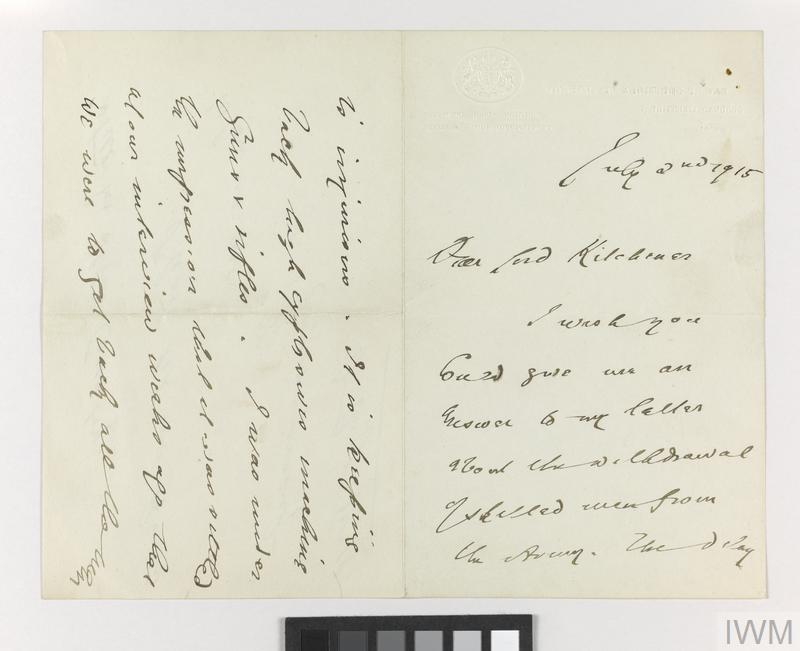 July 2nd 1915
Dear Lord Kitchener
I wish you
could give me an
answer to my letter
about the withdrawal
of skilled men from
the Army. The delay
is injurious. It is keeping
back high explosives machine
guns & rifles. I was under
the impression that it was settled
at our interview weeks ago that
we were to get back all the
IWM